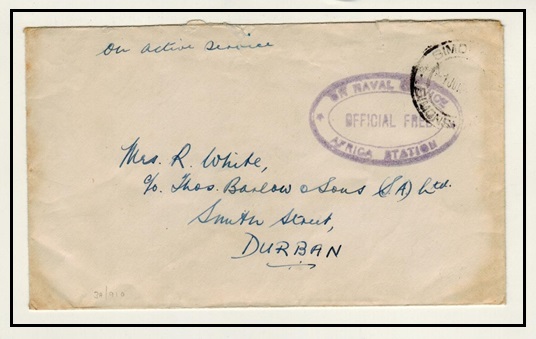 On active service
NAVAL
OFFICIAL FREE
AFRICA STATION
SIMO
Mrs. R. White,
c/o Thos. Barlow & Sons (SA) Ltd.
Smith Street,
DURBAN